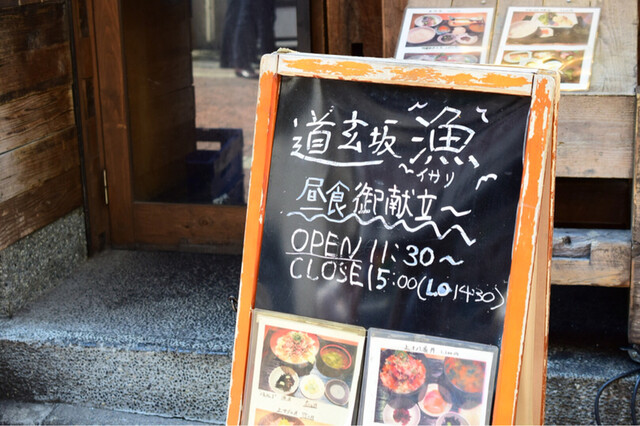 道玄坂 漁
イサリ
昼食御献立~
OPEN 11:30~
CLOSE 15:00(LO 14:30)